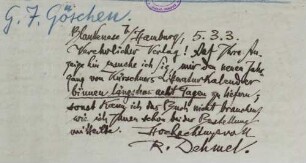 G. J. Göschen.
Blankenese b/Hamburg, 5.3.3.
Verehrlicher Verlag! Auf Ihre An-
zeige hin ersuche ich Sie, mir den neuen Jahr-
gang von Kürschners Literatur-Kalender
binnen längstens acht Tagen zu liefern;
sonst kann ich das Buch nicht brauchen,
wie ich Ihnen schon bei der Bestellung
mitteilte. Hochachtungsvoll
R. Dehmel.